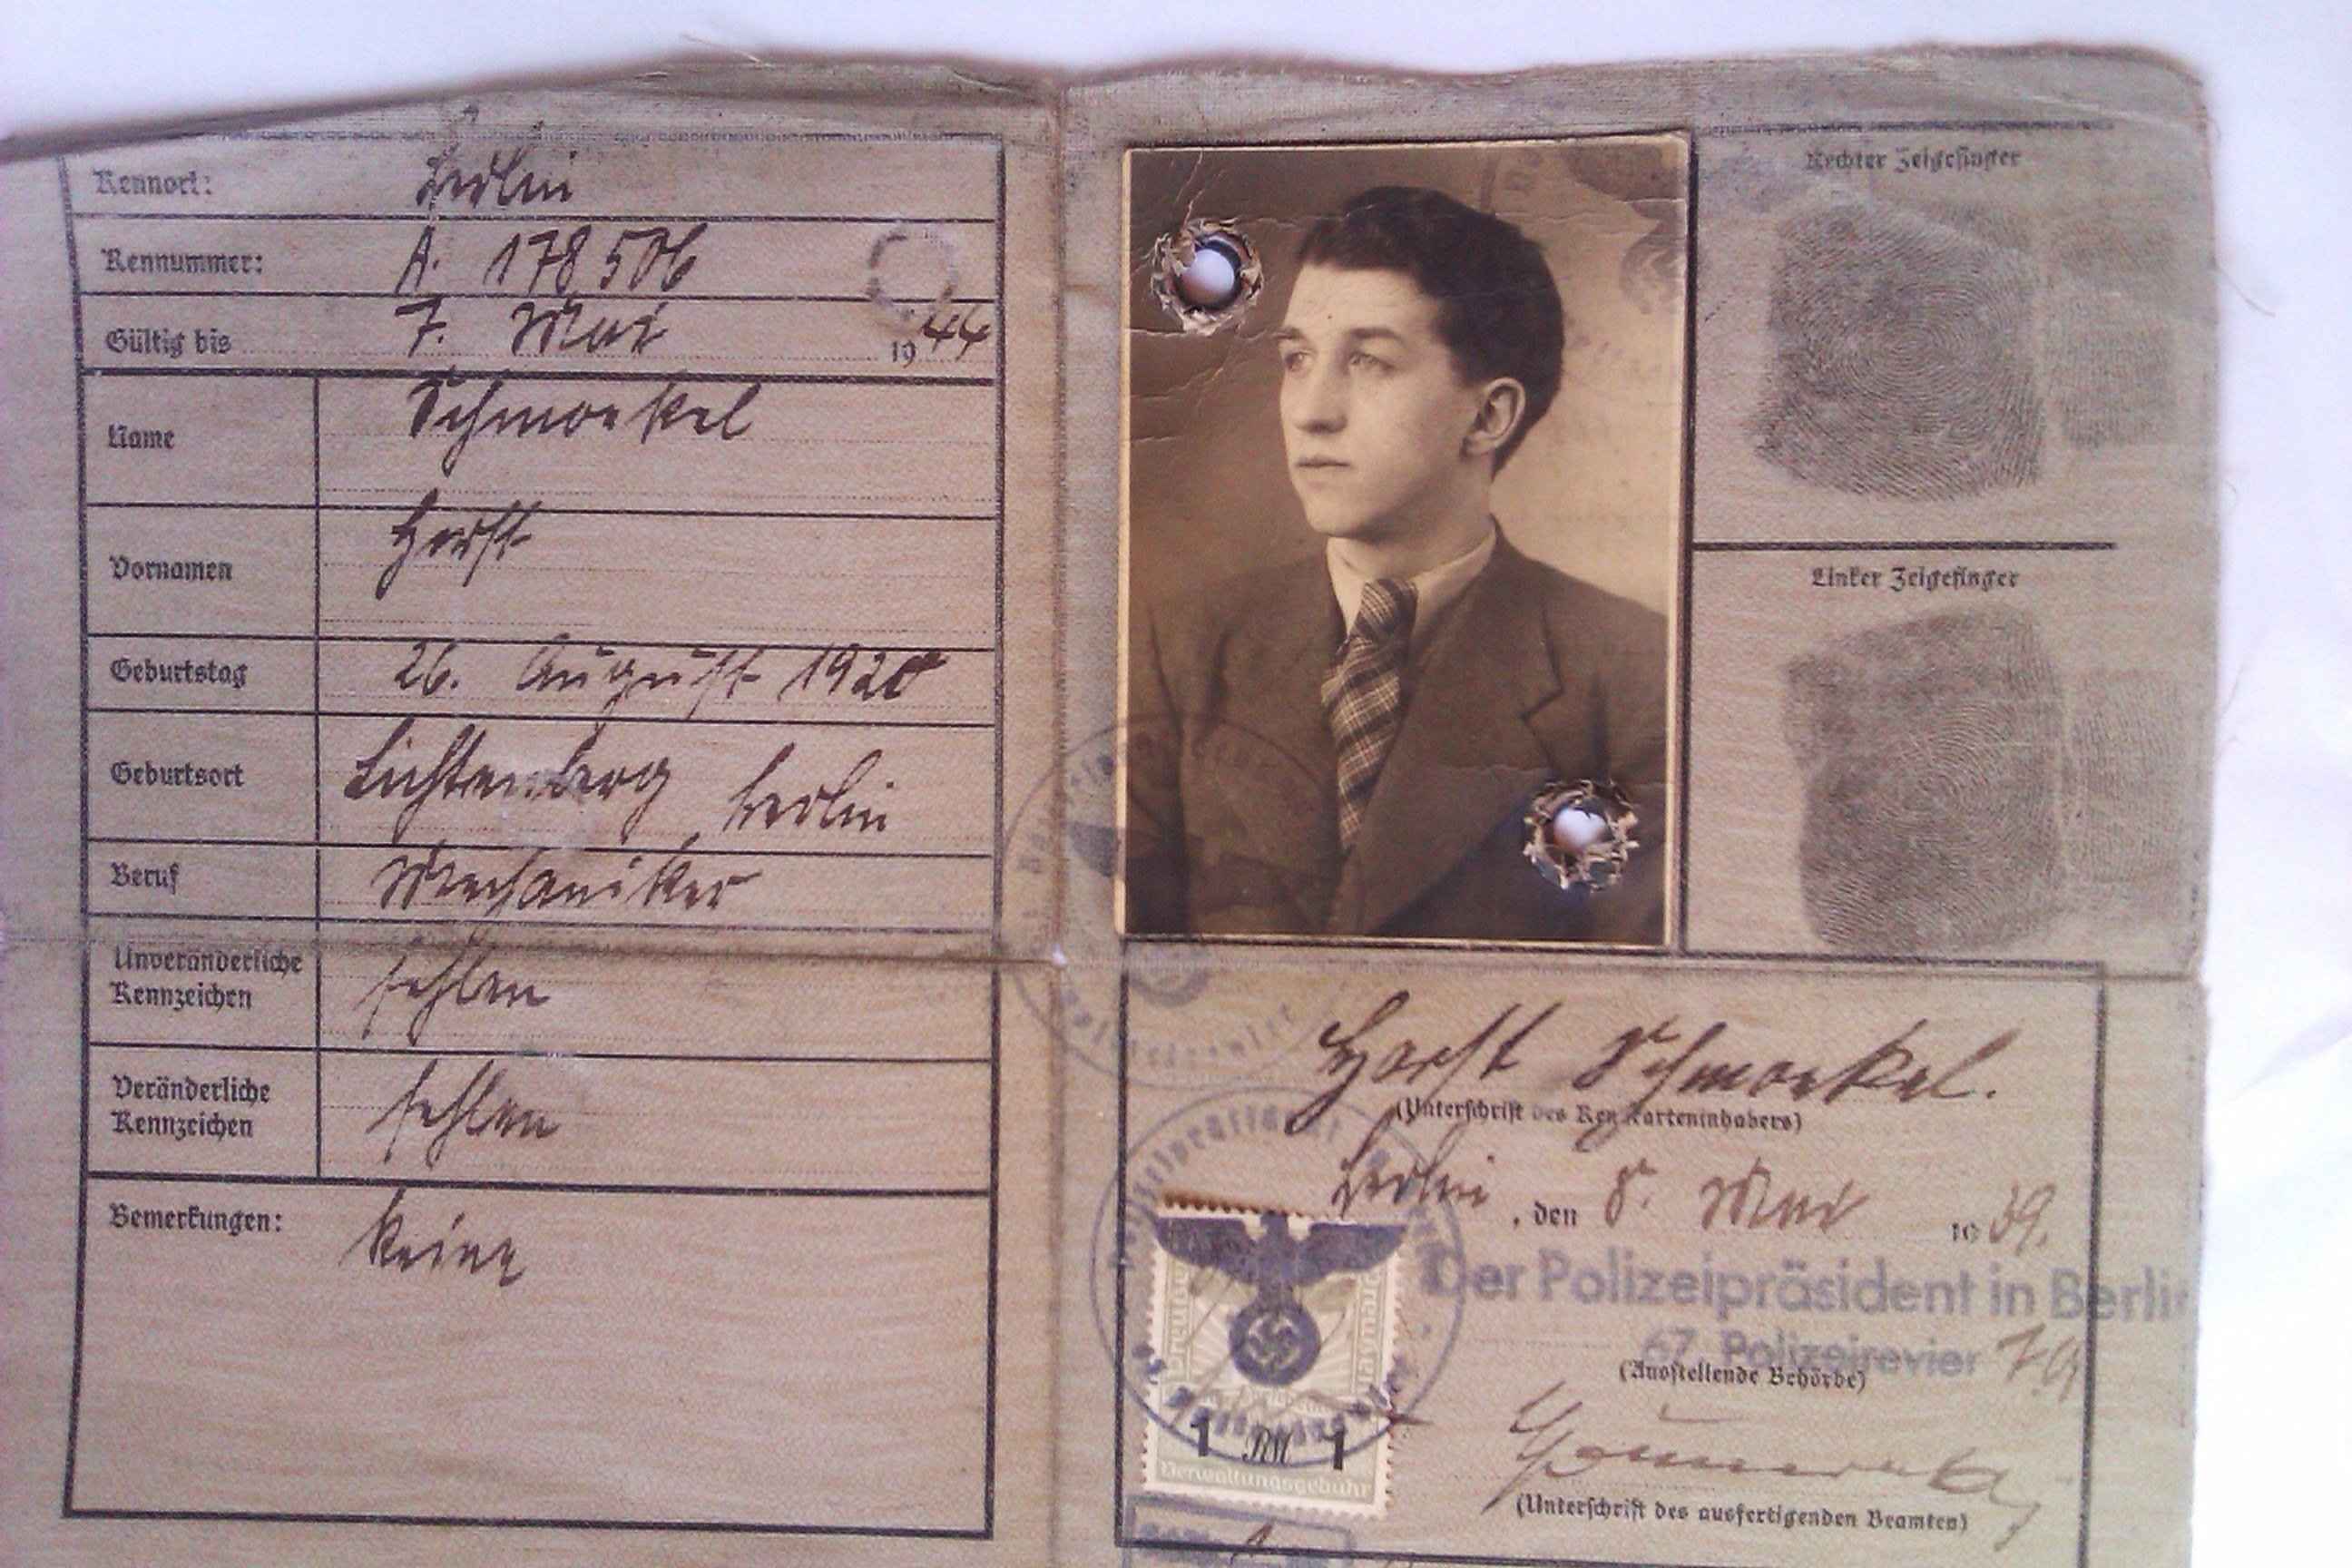 Kennort: Berlin
Kennummer: A. 178506
Gültig bis 7. Mai 1944
Name Schmoekel
Vornamen Horst
Geburtstag 26. August 1920
Geburtsort Lichtenberg, Berlin
Beruf Mechaniker
Unveränderliche
Kennzeichen fehlen
Veränderliche
Kennzeichen fehlen
Bemerkungen: keine
Rechter Zeigefinger
Linker Zeigefinger
Horst Schmoekel.
(Unterschrift des Kennkarteninhabers)
Berlin, den 8. Mai 1939.
Der Polizeipräsident in Berlin
67. Polizeirevier
(Ausstellende Behörde)
(Unterschrift des ausfertigenden Beamten)
1 RM 1
Verwaltungsgebühr